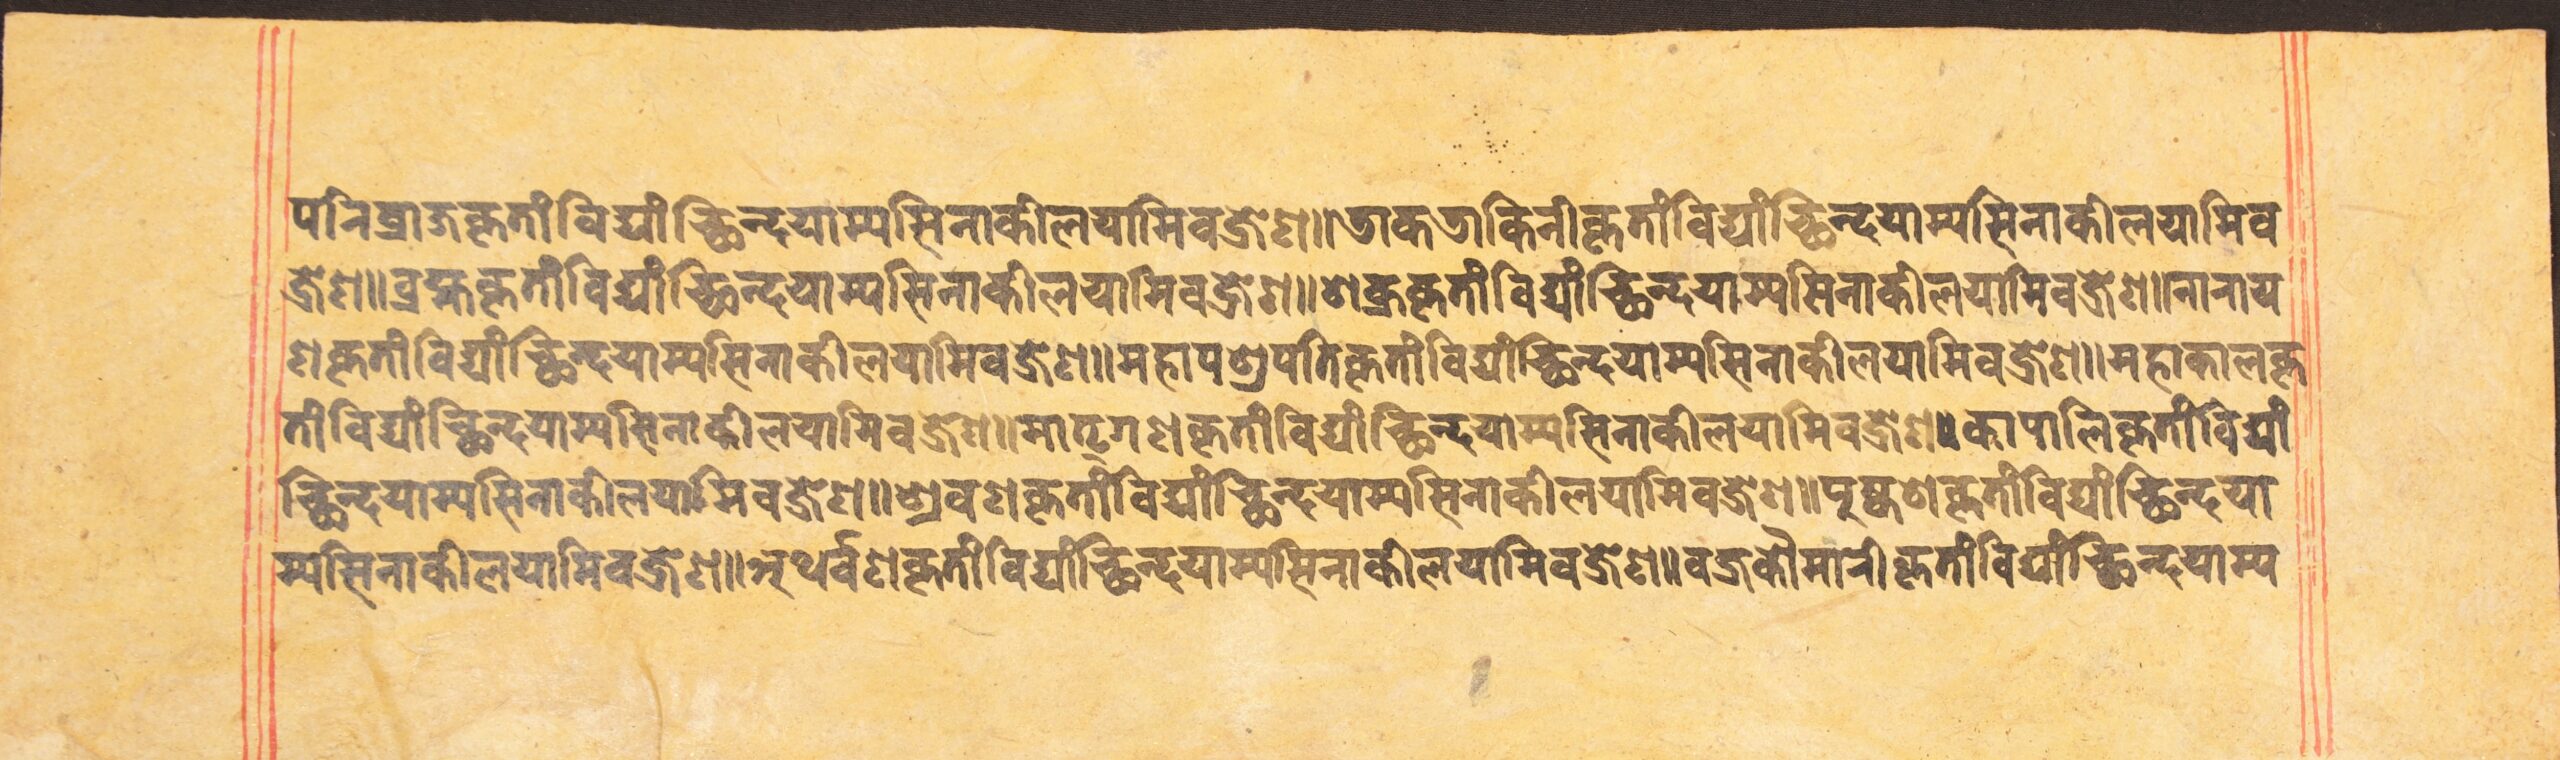 परिब्राजकृतां विद्यां च्छिन्दयाम्यसिना कीलयामि वज्रेण॥ डाकडाकिनीकृतां विद्यां च्छिन्दयाम्यसिना कीलयामि व
ज्रेण॥ ब्रह्मकृतां विद्यां च्छिन्दयाम्यसिना कीलयामि वज्रेण॥ शक्रकृतां विद्यां च्छिन्दयाम्यसिना कीलयामि वज्रेण॥ नाराय
णकृतां विद्यां च्छिन्दयाम्यसिना कीलयामि वज्रेण॥ महापशुपतिकृतां विद्यां च्छिन्दयाम्यसिना कीलयामि वज्रेण॥ महाकालकृ
तां विद्यां च्छिन्दयाम्यसिना कीलयामि वज्रेण॥ मातृगणकृतां विद्यां च्छिन्दयाम्यसिना कीलयामि वज्रेण॥ कापालिकृतां विद्यां
च्छिन्दयाम्यसिना कीलयामि वज्रेण॥ श्रवणकृतां विद्यां च्छिन्दयाम्यसिना कीलयामि वज्रेण॥ पुष्कशकृतां विद्यां च्छिन्दया
म्यसिना कीलयामि वज्रेण॥ अथर्वणकृतां विद्यां च्छिन्दयाम्यसिना कीलयामि वज्रेण॥ वज्रकौमारीकृतां विद्यां च्छिन्दयाम्य